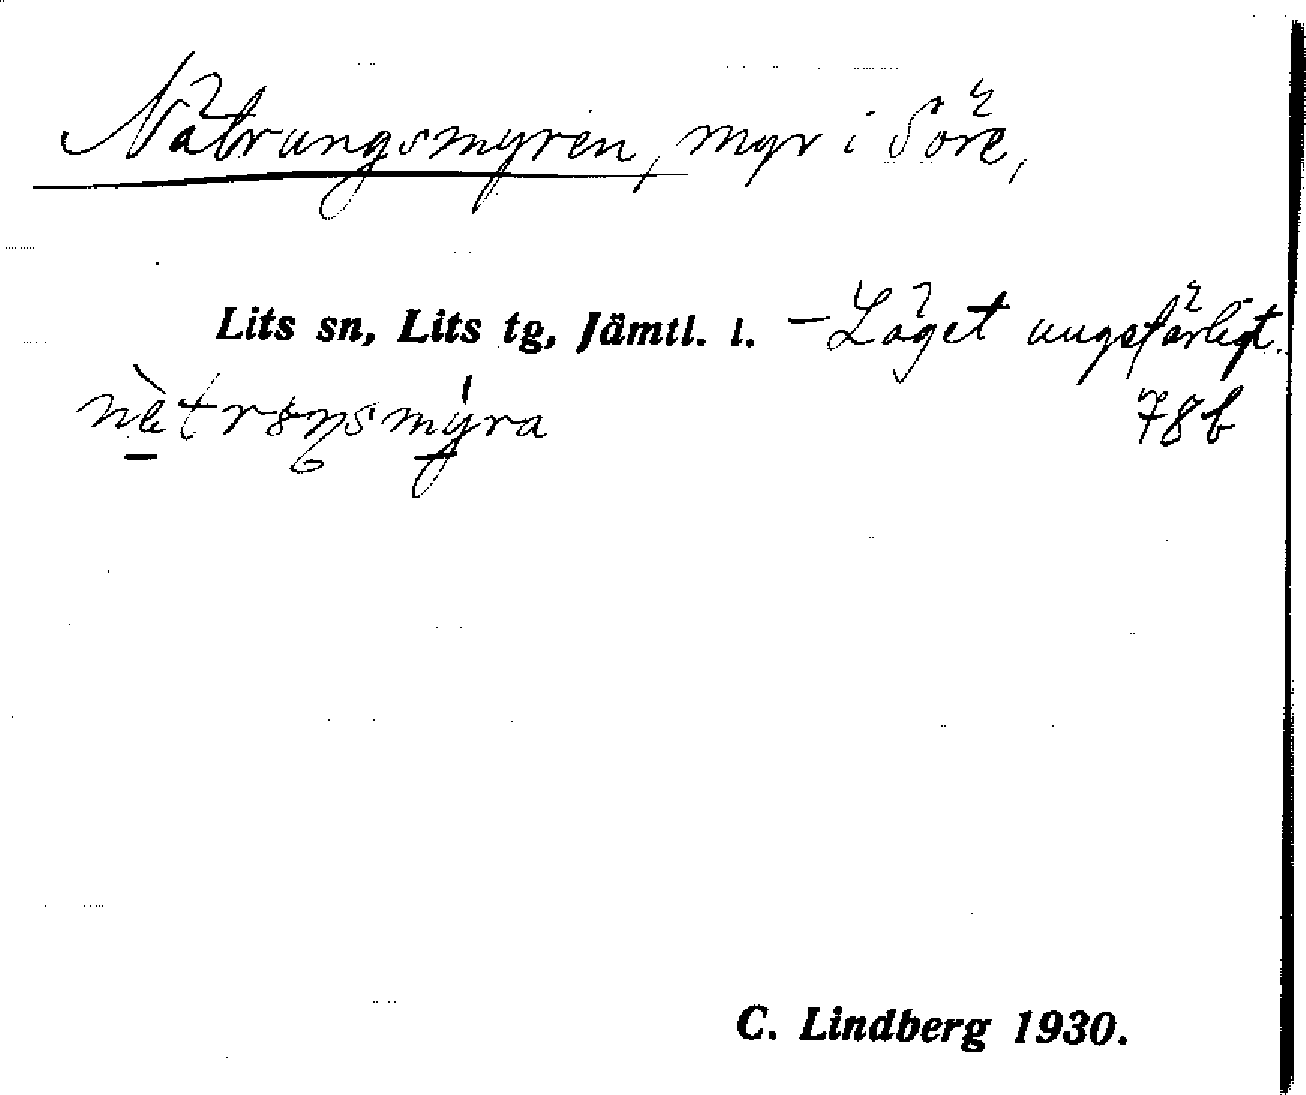 Nätrungsmyren, myr i Söre,
Lits sn, Lits tg, Jämtl. l. – Läget ungefärligt.
78 b
C. Lindberg 1930.